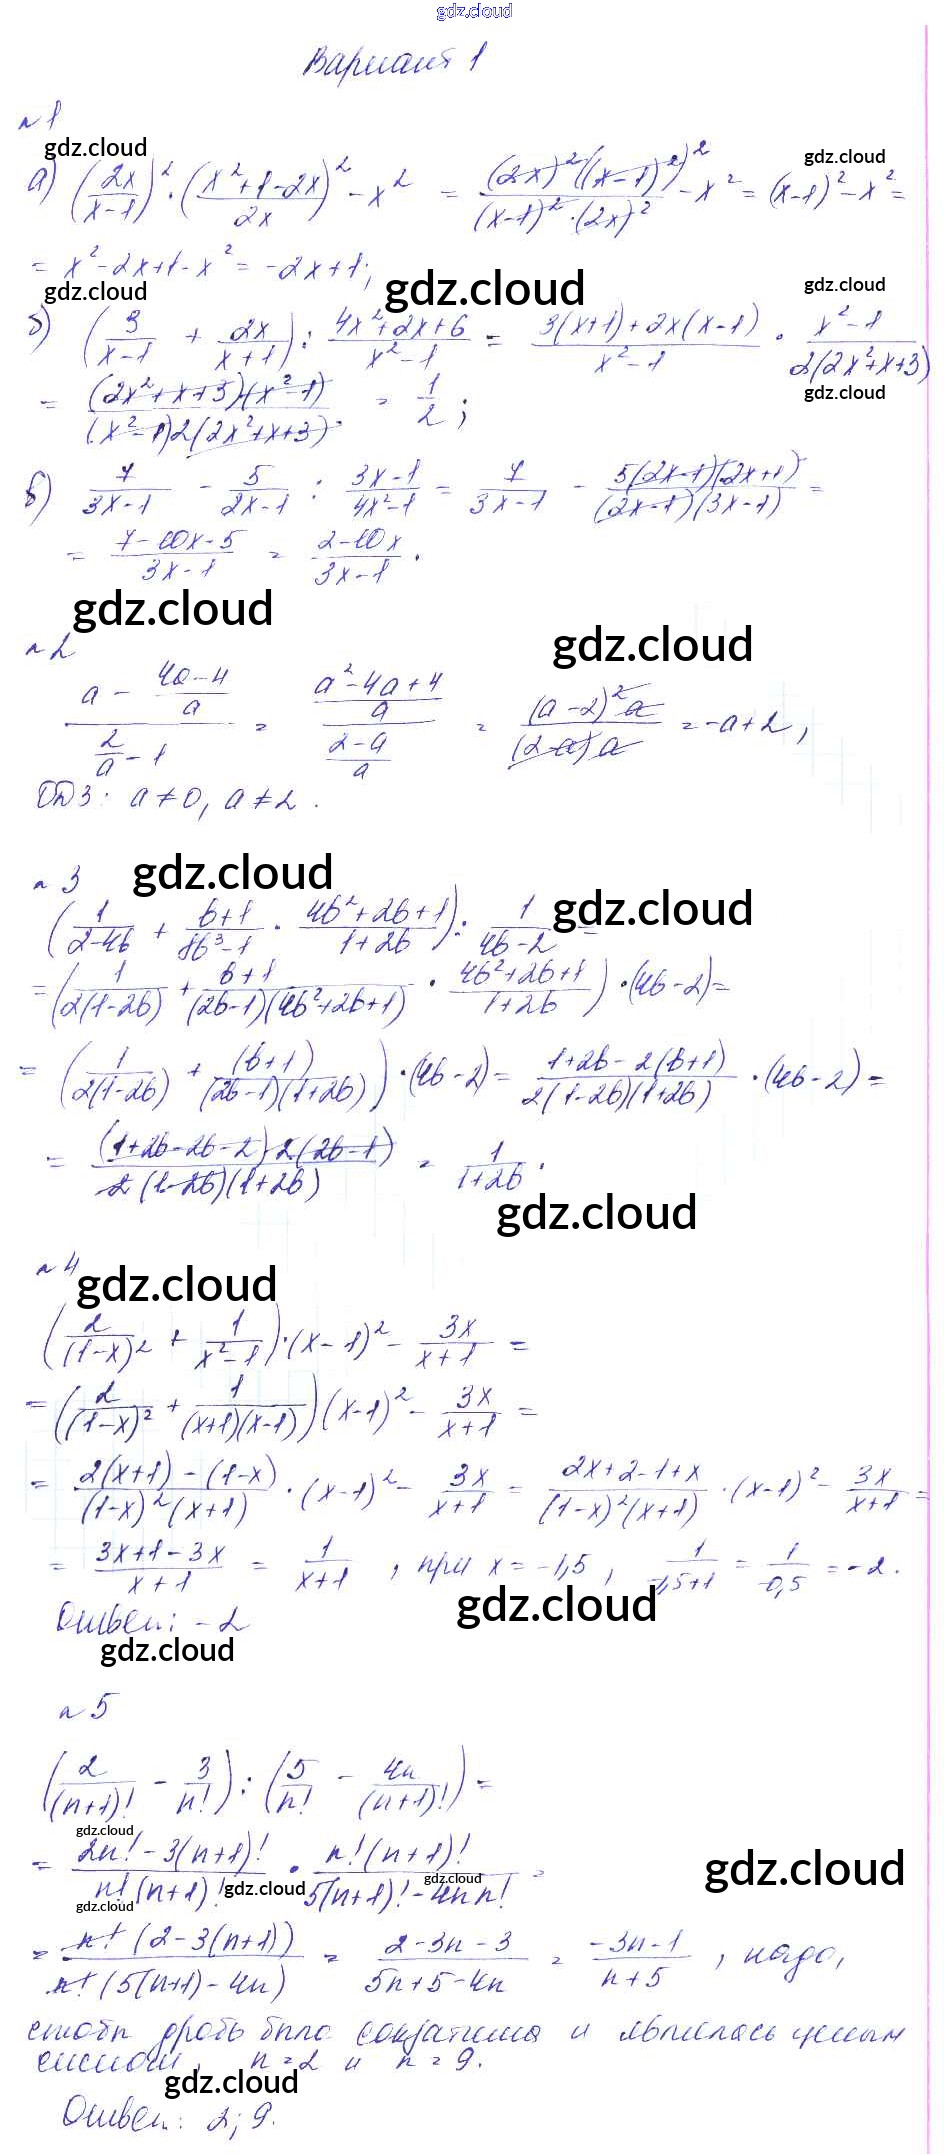 gdz.cloud
Вариант 1
n 1
gdz.cloud gdz.cloud
а) (2x/(x-1))² · ((x²+1-2x)/2x)² - x² = (2x)²((x-1)²)²/((x-1)²·(2x)²) - x² = (x-1)² - x² =
= x² - 2x + 1 - x² = -2x + 1;
gdz.cloud gdz.cloud gdz.cloud
б) (3/(x-1) + 2x/(x+1)) : (4x²+2x+6)/(x²-1) = (3(x+1)+2x(x-1))/(x²-1) · (x²-1)/(2(2x²+x+3))
gdz.cloud
= (2x²+x+3)(x²-1)/((x²-1)2(2x²+x+3)) = 1/2;
в) 7/(3x-1) - 5/(2x-1) : (3x-1)/(4x²-1) = 7/(3x-1) - 5(2x-1)(2x+1)/((2x-1)(3x-1)) =
= (7-10x-5)/(3x-1) = (2-10x)/(3x-1).
gdz.cloud gdz.cloud
n 2
(a - (4a-4)/a)/(2/a - 1) = ((a²-4a+4)/a)/((2-a)/a) = (a-2)²a/((2-a)a) = -a+2,
ОДЗ: a≠0, a≠2.
n 3 gdz.cloud gdz.cloud
(1/(2-4b) + (b+1)/(8b³-1) · (4b²+2b+1)/(1+2b)) : 1/(4b-2) =
= (1/(2(1-2b)) + (b+1)/((2b-1)(4b²+2b+1)) · (4b²+2b+1)/(1+2b)) · (4b-2) =
= (1/(2(1-2b)) + (b+1)/((2b-1)(1+2b))) · (4b-2) = (1+2b-2(b+1))/(2(1-2b)(1+2b)) · (4b-2) =
= (1+2b-2b-2)2(2b-1)/(2(1-2b)(1+2b)) = 1/(1+2b).
gdz.cloud
n 4 gdz.cloud
(2/(1-x)² + 1/(x²-1)) · (x-1)² - 3x/(x+1) =
= (2/(1-x)² + 1/((x+1)(x-1)))(x-1)² - 3x/(x+1) =
= (2(x+1)-(1-x))/((1-x)²(x+1)) · (x-1)² - 3x/(x+1) = (2x+2-1+x)/((1-x)²(x+1)) · (x-1)² - 3x/(x+1) =
= (3x+1-3x)/(x+1) = 1/(x+1), при x = -1,5, 1/(-1,5+1) = 1/(-0,5) = -2.
gdz.cloud
Ответ: -2
gdz.cloud
n 5
(2/(n+1)! - 3/n!) : (5/n! - 4n/(n+1)!) =
gdz.cloud
= (2n!-3(n+1)!)/(n!(n+1)!) · n!(n+1)!/(5(n+1)!-4n n!) =
gdz.cloud gdz.cloud gdz.cloud gdz.cloud
= n!(2-3(n+1))/(n!(5(n+1)-4n)) = (2-3n-3)/(5n+5-4n) = (-3n-1)/(n+5), надо,
чтобы дробь была сократима и являлась целым
числом, n=2 и n=9.
gdz.cloud
Ответ: 2; 9.